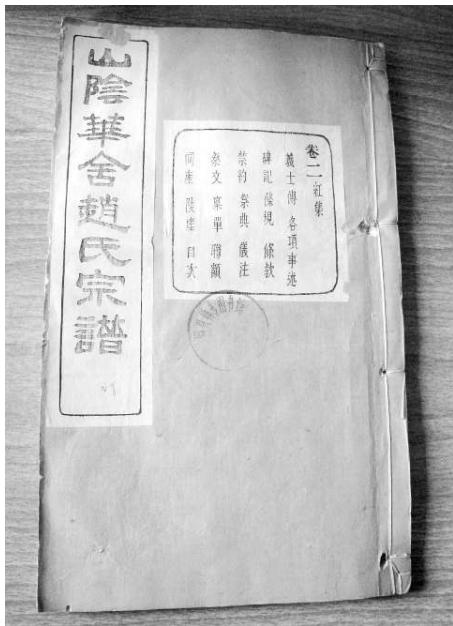 山陰華舍趙氏宗譜
卷二 紅集
義士傳 各項事述
碑記 條規 條款
禁約 祭典 儀注
祭文 稟單 聯額
目次